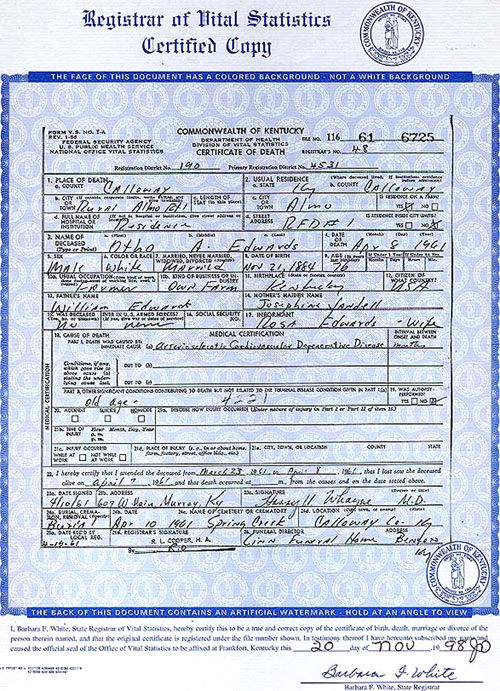 Registrar of Vital Statistics
Certified Copy
COMMONWEALTH OF KENTUCKY
THE FACE OF THIS DOCUMENT HAS A COLORED BACKGROUND - NOT A WHITE BACKGROUND
FORM V.S. NO. 1-A
REV. 1-56
FEDERAL SECURITY AGENCY
U. S. PUBLIC HEALTH SERVICE
NATIONAL OFFICE VITAL STATISTICS
COMMONWEALTH OF KENTUCKY
DEPARTMENT OF HEALTH
DIVISION OF VITAL STATISTICS
CERTIFICATE OF DEATH
FILE NO. 116 61 6725
REGISTRAR'S NO. 48
Registration District No. 190 Primary Registration District No. 4531
1. PLACE OF DEATH
a. COUNTY Calloway
2. USUAL RESIDENCE (Where deceased lived. If institution: residence
a. STATE Ky b. COUNTY Calloway
b. CITY
TOWN Rural Almo
c. LENGTH OF STAY
c. CITY OR TOWN Almo
IS RESIDENCE ON A FARM?
YES NO
d. FULL NAME OF HOSPITAL OR INSTITUTION Residence
d. STREET ADDRESS RFD#1
IS RESIDENCE INSIDE CITY LIMITS?
YES NO
3. NAME OF DECEASED (Type or Print) Otho A. Edwards
4. DATE OF DEATH Apr 8 1961
5. SEX Male
6. COLOR White
7. MARRIED, NEVER MARRIED, WIDOWED, DIVORCED Married
8. DATE OF BIRTH Nov 21, 1884
9. AGE 76
10a. USUAL OCCUPATION Farmer
10b. KIND OF BUSINESS OR INDUSTRY Own Farm
11. BIRTHPLACE (State or foreign country) Kentucky
12. CITIZEN OF WHAT COUNTRY? USA
13. FATHER'S NAME William Edwards
14. MOTHER'S MAIDEN NAME Josephine
15. WAS DECEASED EVER IN U. S. ARMED FORCES? No
16. SOCIAL SECURITY NO.
17. INFORMANT Rosa Edwards - Wife
18. CAUSE OF DEATH MEDICAL CERTIFICATION
INTERVAL BETWEEN ONSET AND DEATH
PART I. DEATH WAS CAUSED BY:
IMMEDIATE CAUSE (a) Arteriosclerotic Cardiovascular Degenerative Disease months
Conditions, if any, which gave rise to above cause (a) stating the underlying cause last.
DUE TO (b)
DUE TO (c)
MEDICAL CERTIFICATION
PART II. OTHER SIGNIFICANT CONDITIONS CONTRIBUTING TO DEATH BUT NOT RELATED TO THE TERMINAL DISEASE CONDITION GIVEN IN PART I(a)
old age - 4-221
19. WAS AUTOPSY PERFORMED?
YES NO
20. ACCIDENT SUICIDE HOMICIDE
21a. DESCRIBE HOW INJURY OCCURRED (Enter nature of injury in Part I or Part II of item 18)
21b. TIME OF INJURY Hour Month, Day, Year
a. m.
p. m.
21c. INJURY OCCURRED
WHILE AT WORK NOT WHILE AT WORK
21d. PLACE OF INJURY (e. g., in or about home, farm, factory, street, office bldg., etc.)
21e. CITY, TOWN, OR LOCATION COUNTY STATE
22. I hereby certify that I attended the deceased from March 23, 1961, to April 8, 1961, that I last saw the deceased
alive on April 7, 1961, and that death occurred at m., from the causes and on the date stated above.
23a. DATE SIGNED 4/10/61
23b. ADDRESS 607 W Main, Murray, Ky
23c. SIGNATURE M.D.
24a. BURIAL, CREMATION Burial
24b. DATE Apr 10 1961
24c. NAME OF CEMETERY OR CREMATORY Spring Creek
24d. LOCATION Calloway Co Ky
25a. DATE REC'D BY LOCAL REG. 4-19-61
25b. REGISTRAR'S SIGNATURE
R. L. COOPER, H. A.
26. FUNERAL DIRECTOR Linn Funeral Home
ADDRESS Benton Ky
COMMONWEALTH OF KENTUCKY
THE BACK OF THIS DOCUMENT CONTAINS AN ARTIFICIAL WATERMARK - HOLD AT AN ANGLE TO VIEW
I, Barbara F. White, State Registrar of Vital Statistics, hereby certify this to be a true and correct copy of the certificate of birth, death, marriage or divorce of the
person therein named, and that the original certificate is registered under the file number shown. In testimony thereof I have hereunto subscribed my name and
caused the official seal of the Office of Vital Statistics to be affixed at Frankfort, Kentucky this 20 day of Nov 1998
Barbara F. White
Barbara F. White, State Registrar